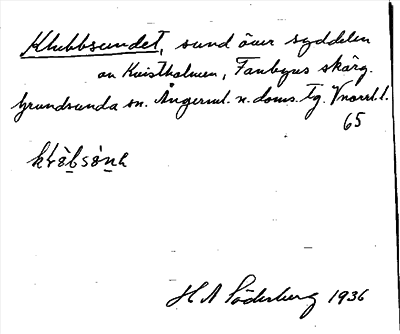 Klubbsundet, sund över syddelen
av Kvistholmen, Fanbyns skärg.
Grundsunda sn. Ångerml. n. doms. tg. Vnorrl. l.
65
H A Söderberg 1936